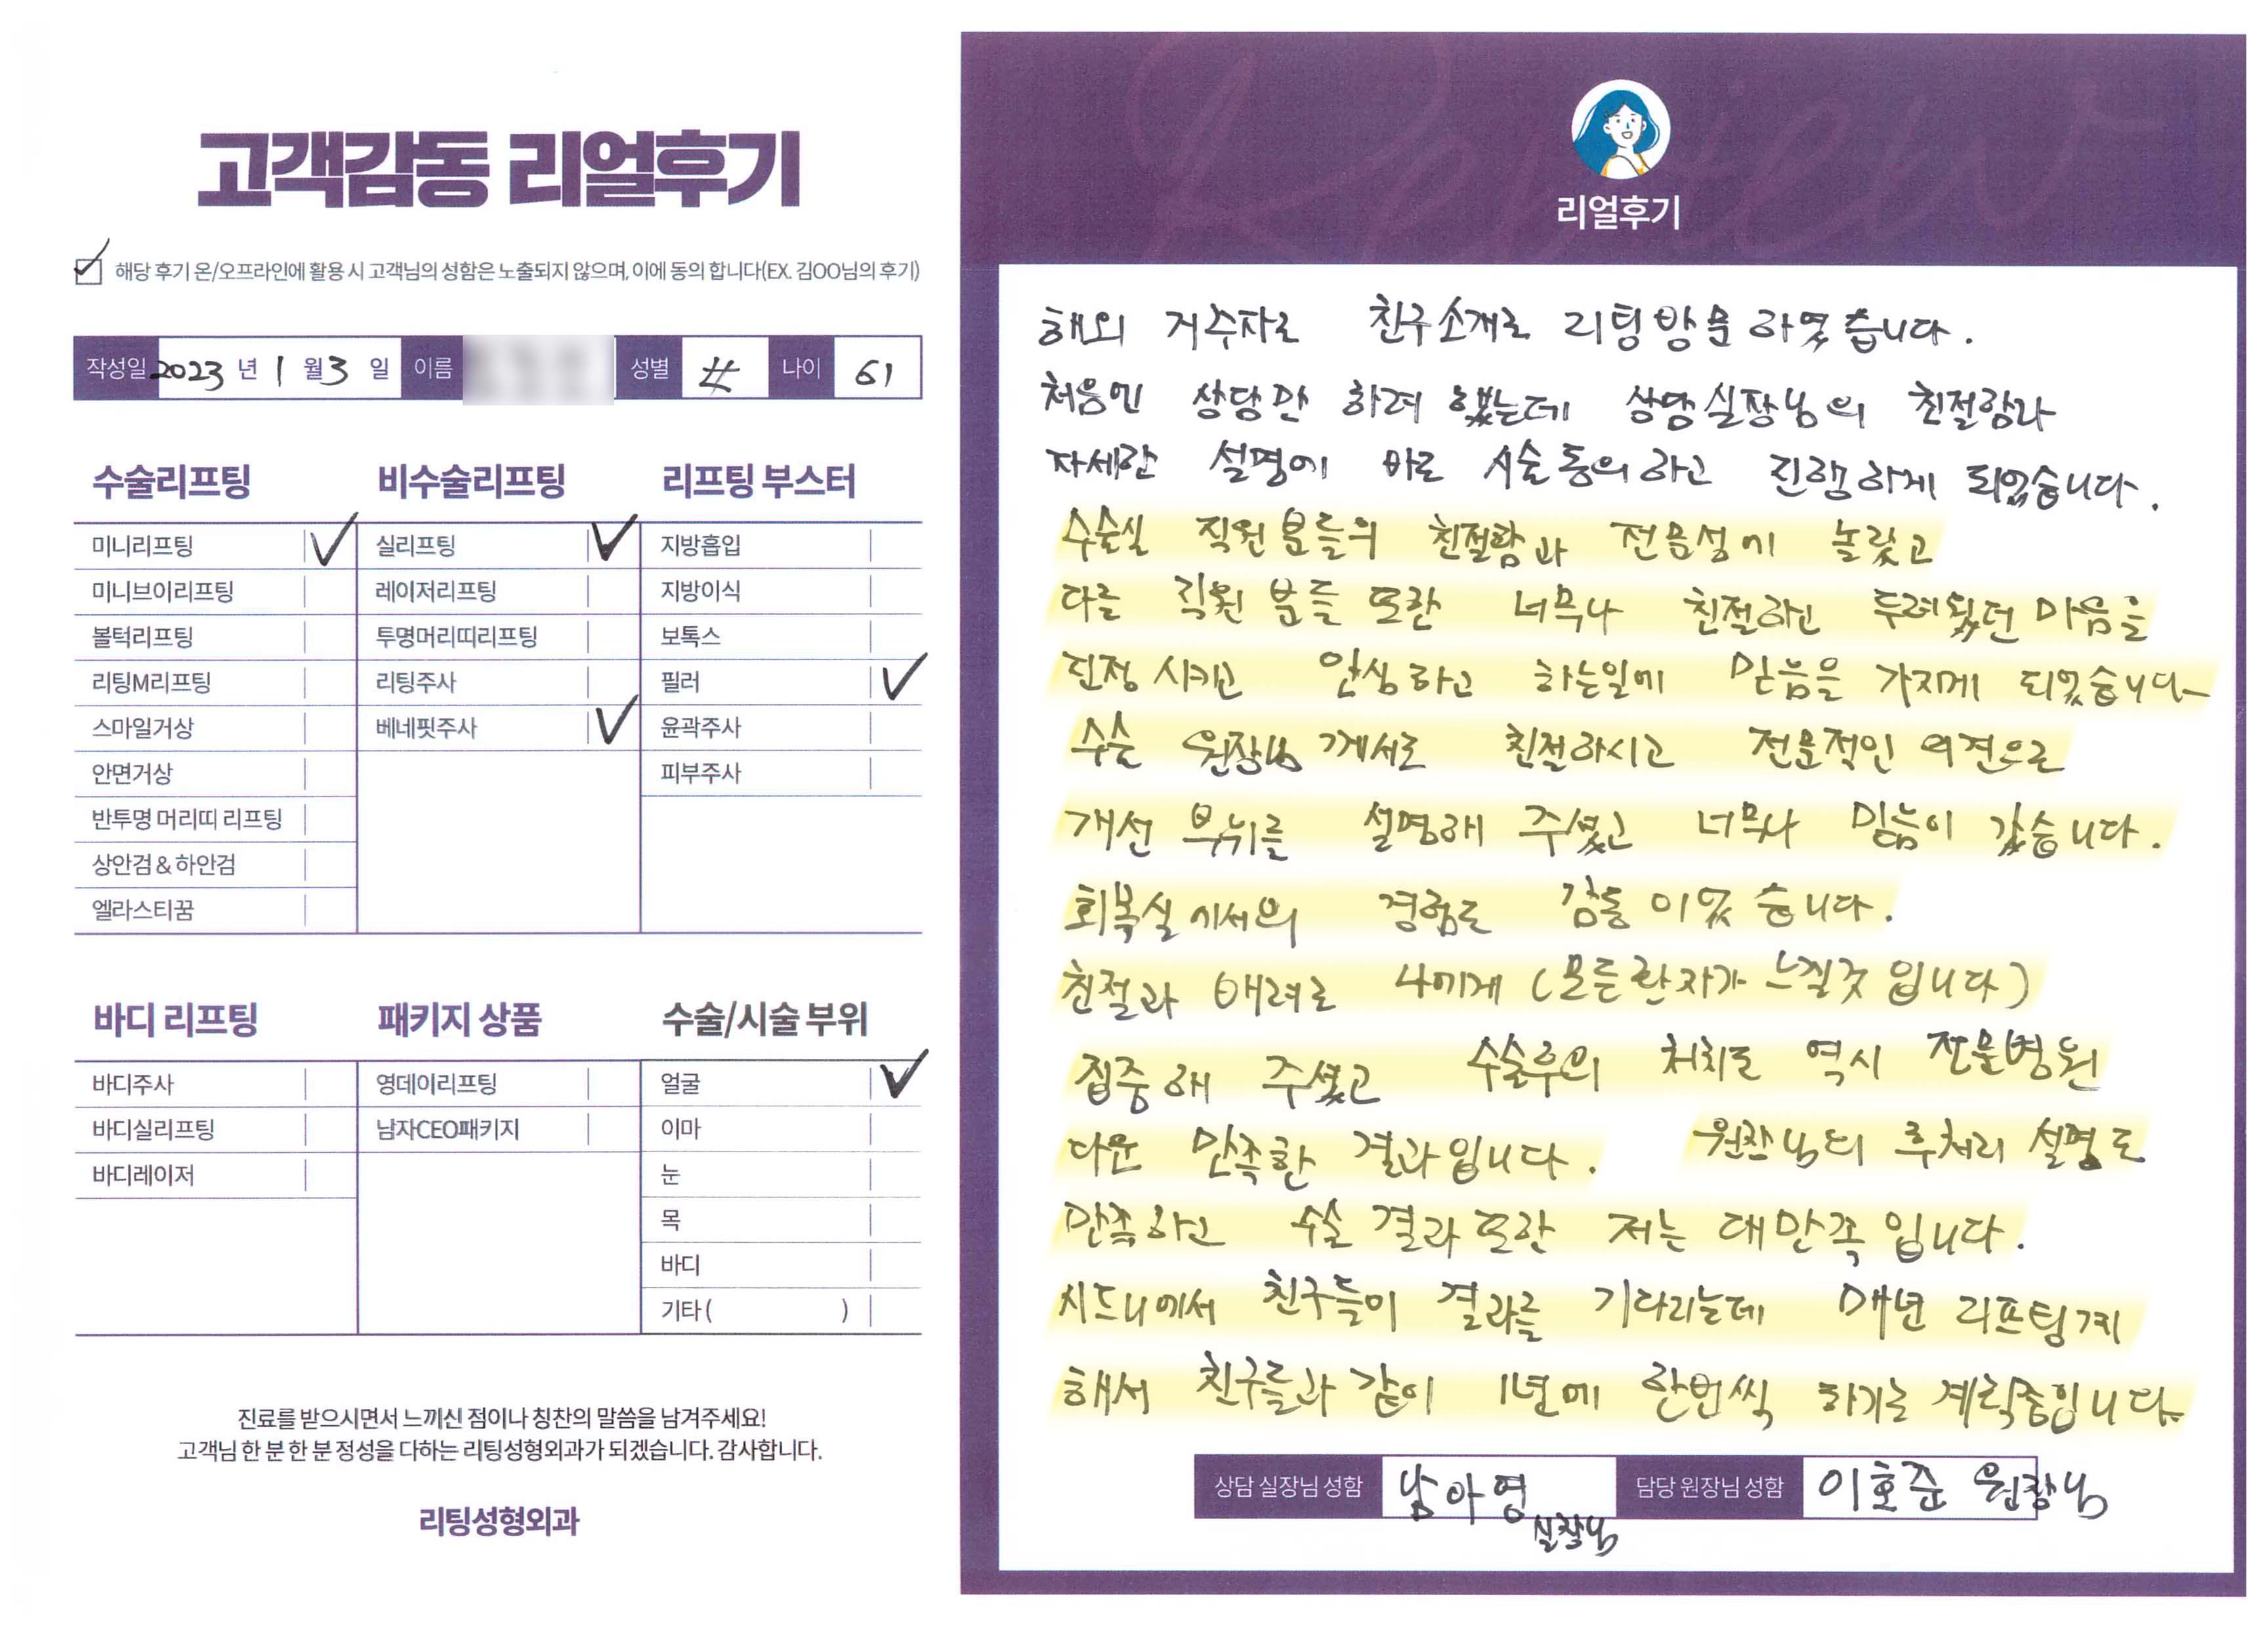 고객감동 리얼후기
해당 후기 온/오프라인에 활용 시 고객님의 성함은 노출되지 않으며, 이에 동의 합니다(EX. 김OO님의 후기)
작성일 2023 년 1 월 3 일 이름 성별 나이 61
수술리프팅
미니리프팅
미니브이리프팅
볼턱리프팅
리팅M리프팅
스마일거상
안면거상
반투명 머리띠 리프팅
상안검 & 하안검
엘라스티꿈
비수술리프팅
실리프팅
레이저리프팅
투명머리띠리프팅
리팅주사
베네핏주사
리프팅 부스터
지방흡입
지방이식
보톡스
필러
윤곽주사
피부주사
바디 리프팅
바디주사
바디실리프팅
바디레이저
패키지 상품
영데이리프팅
남자CEO패키지
수술/시술 부위
얼굴
이마
눈
목
바디
기타 ( )
진료를 받으시면서 느끼신 점이나 칭찬의 말씀을 남겨주세요!
고객님 한 분 한 분 정성을 다하는 리팅성형외과가 되겠습니다. 감사합니다.
리팅성형외과
리얼후기
해외 거주자로 친구소개로 리팅방문 하였습니다.
처음엔 상담만 하려 했는데 상담실장님의 친절함과
자세한 설명에 바로 시술동의하고 진행하게 되었습니다.
수술실 직원분들의 친절함과 전문성에 놀랐고
다른 직원분들 또한 너무나 친절하고 두려웠던 마음을
진정시키고 안심하고 하는일에 믿음을 가지게 되었습니다
수술 원장님께서도 친절하시고 전문적인 의견으로
개선 부위를 설명해 주셨고 너무나 믿음이 갔습니다.
회복실에서의 경험도 감동이었습니다.
친절과 배려로 나에게 (모든환자가 느낄것 입니다)
집중해 주셨고 수술후의 처치도 역시 전문병원
다운 만족한 결과입니다. 원장님의 후처리 설명도
만족하고 수술 결과또한 저는 대만족입니다.
시드니에서 친구들이 결과를 기다리는데 매년 리프팅계
해서 친구들과 같이 1년에 한번씩 하기로 계획중입니다.
상담 실장님 성함 남아영 실장님 담당 원장님 성함 이호준 원장님